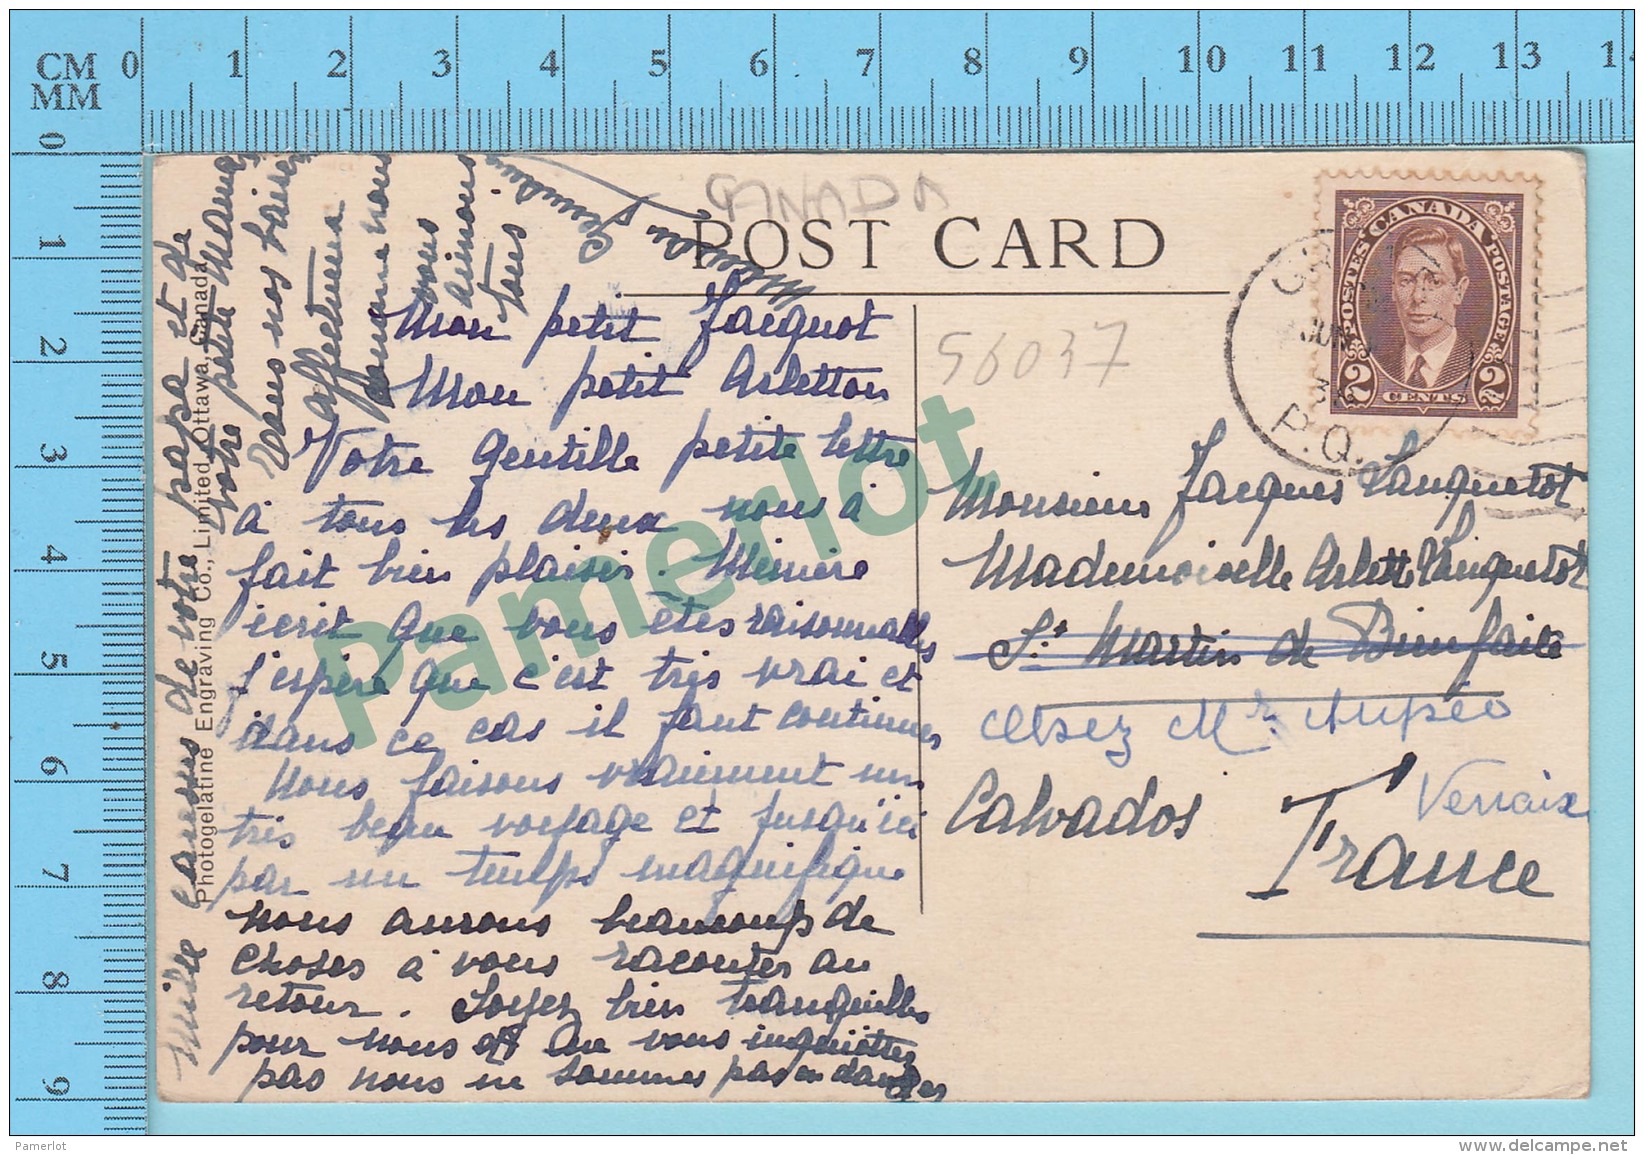 CM 0 1 2 3 4 5 6 7 8 9 10 11 12 13 14
MM
0 1 2 3 4 5 6 7 8 9
CANADA
POST CARD
56037
POSTES CANADA POSTAGE
2 CENTS 2
JUN
P.Q.
Mon petit Jacquot
Mon petit Arletton
Votre gentille petite lettre
à tous les deux nous a
fait bien plaisir. Mémère
écrit que vous êtes raisonnables
J'espère que c'est très vrai et
dans ce cas il faut continuer
Nous faisons vraiment un
très beau voyage et jusqu'ici
par un temps magnifique
nous aurons beaucoup de
choses à vous raconter au
retour. Soyez bien tranquilles
pour nous et ne vous inquiétez
pas nous ne sommes pas en danger
Mille baisers de votre papa et de
votre petite Maman
vous nos baisers
affectueux
comme nous
vous
aimons
tous
Photogelatine Engraving Co., Limited, Ottawa, Canada.
Monsieur Jacques Languetot
Mademoiselle Arlette Languetot
St Martin de Bienfaite
chez Mr Aupéo
Calvados
Vernaix
France
Pamerlot
Pamerlot
www.delcampe.net